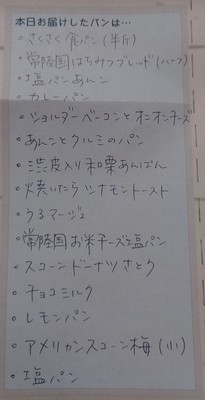 本日お届けしたパンは…
・さくさく食パン(半斤)
・常陸国はちみつブレッド(ハーフ)
・塩パンあんこ
・カレーパン
・ショルダーベーコンとオニオンチーズ
・あんことクルミのパン
・渋皮入り和栗あんぱん
・焼いたらシナモントースト
・うるマージュ
・常陸国お米チーズと塩パン
・スコーンドーナツさとう
・チョコミルク
・レモンパン
・アメリカンスコーン梅(小)
・塩パン